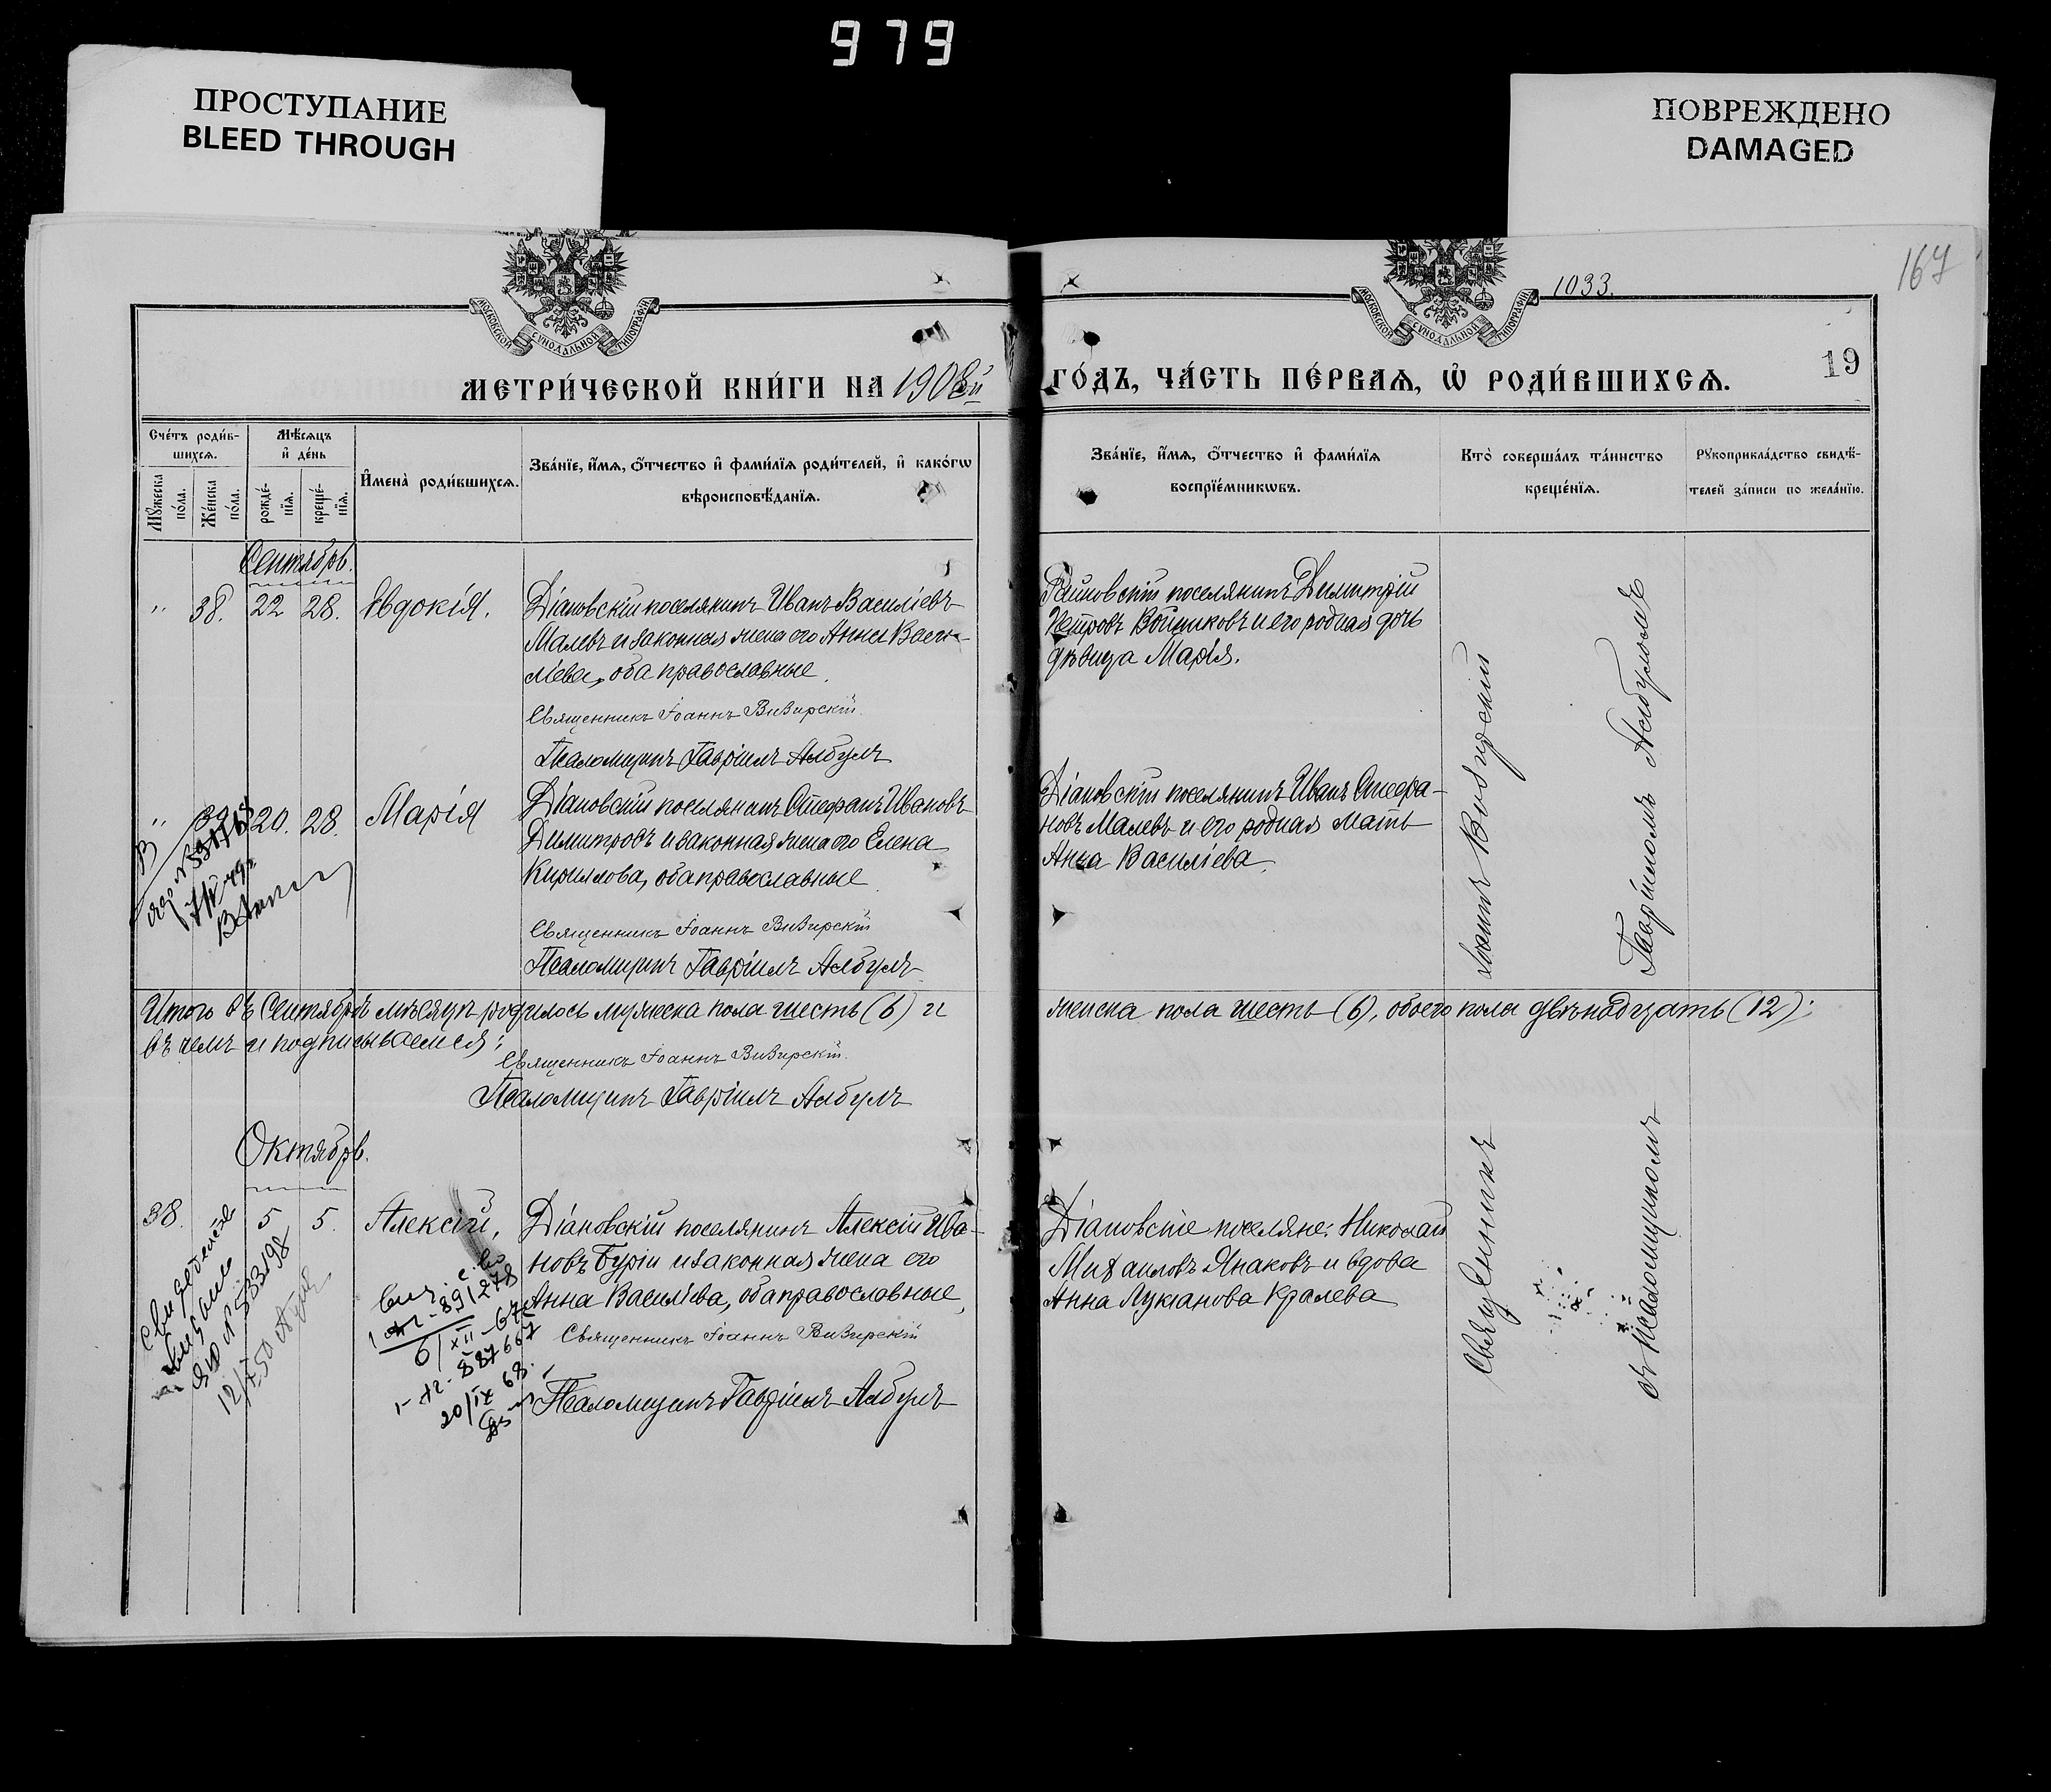 979
ПРОСТУПАНИЕ
BLEED THROUGH
ПОВРЕЖДЕНО
DAMAGED
167
1033.
МОСКОВСКОЙ СѴНОДАЛЬНОЙ ТИПОГРАФІИ
МОСКОВСКОЙ СѴНОДАЛЬНОЙ ТИПОГРАФІИ
19
МЕТРИ́ЧЕСКОЙ КНИ́ГИ НА 1908й ГО́ДЪ, ЧА́СТЬ ПЕ́РВАѦ, Ѽ РОДИ́ВШИХСѦ.
Сче́тъ роди́в-
шихсѧ.
Мꙋжеска по́ла.
Же́нска по́ла.
Мѣ́сѧцъ
и҆ де́нь
рожде́-
нїѧ.
креще́-
нїѧ.
И҆мена̀ роди́вшихсѧ.
Зва́нїе, и҆́мѧ, ѻ҆́тчество и҆ фами́лїѧ роди́телей, и҆ како́гѡ
вѣроисповѣ́данїѧ.
Зва́нїе, и҆́мѧ, ѻ҆́тчество и҆ фами́лїѧ
воспрїе́мникѡвъ.
Кто̀ соверша́лъ та́инство
креще́нїѧ.
Рꙋкоприкла́дство свидѣ́-
телей за́писи по жела́нїю.
Сентябрь.
" 38. 22 28. Евдокія.
Діановскій поселянинъ Иванъ Василіевъ
Малевъ и законная жена его Анна Васи-
ліева, оба православные.
Священникъ Іоаннъ Вивирскій.
Псаломщикъ Гавріилъ Албулъ
поселянинъ Димитрій
Петровъ Войниковъ и его родная дочь
дѣвица Марія.
" 39 20. 28. Марія
Діановскій поселянинъ Стефанъ Ивановъ
Димитровъ и законная жена его Елена
Кириллова, оба православные.
Священникъ Іоаннъ Вивирскій
Псаломщикъ Гавріилъ Албулъ
Діановскій поселянинъ Иванъ Стефа-
новъ Малевъ и его родная мать
Анна Василіева.
Итого въ Сентябрѣ мѣсяцѣ родилось мужеска пола шесть (6) и женска пола шесть (6), обоего пола двѣнадцать (12);
въ чемъ и подписываемся:
Священникъ Іоаннъ Вивирскій.
Псаломщикъ Гавріилъ Албулъ
Октябрь.
38. 5 5. Алексій,
Діановскій поселянинъ Алексій Ива-
новъ Бурій и законная жена его
Анна Василіева, оба православные,
Священникъ Іоаннъ Вивирскій
Псаломщикъ Гавріилъ Албулъ
Діановскіе поселяне: Николай
Михаиловъ Янаковъ и вдова
Анна Лукіанова Кралева
Священникъ Іоаннъ Вивирскій
съ Псаломщикомъ Гавріиломъ Албуломъ
891278
6/XII-67
887667
20/IX 68.